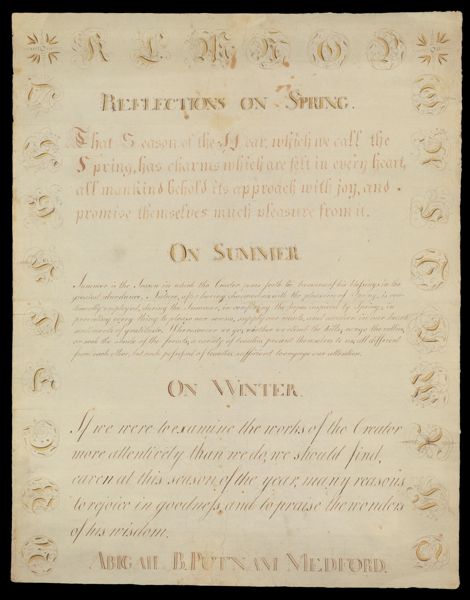 K L M N O P
REFLECTIONS ON SPRING.
That Season of the Year, which we call the
Spring, has charms which are felt in every heart,
all mankind behold its approach with joy, and
promise themselves much pleasure from it.
ON SUMMER
Summer is the Season in which the Creator pours forth the treasures of his blessings in the
greatest abundance. Nature, after having cheered us with the pleasures of Spring, is con-
tinually employed during the Summer, in
providing every thing
sentiments of gratitude. Wheresoever we go, whether we ascend the hills,
or seek the shade of the forests, a variety of beauties present themselves to us, all different
from each other, but each possessed of beauties sufficient to engage our attention.
ON WINTER.
If we were to examine the works of the Creator
more attentively than we do, we should find,
eaven at this season of the year, many reasons
to rejoice in goodness, and to praise the wonders
of his wisdom.
ABIGAIL B. PUTNAM MEDFORD.